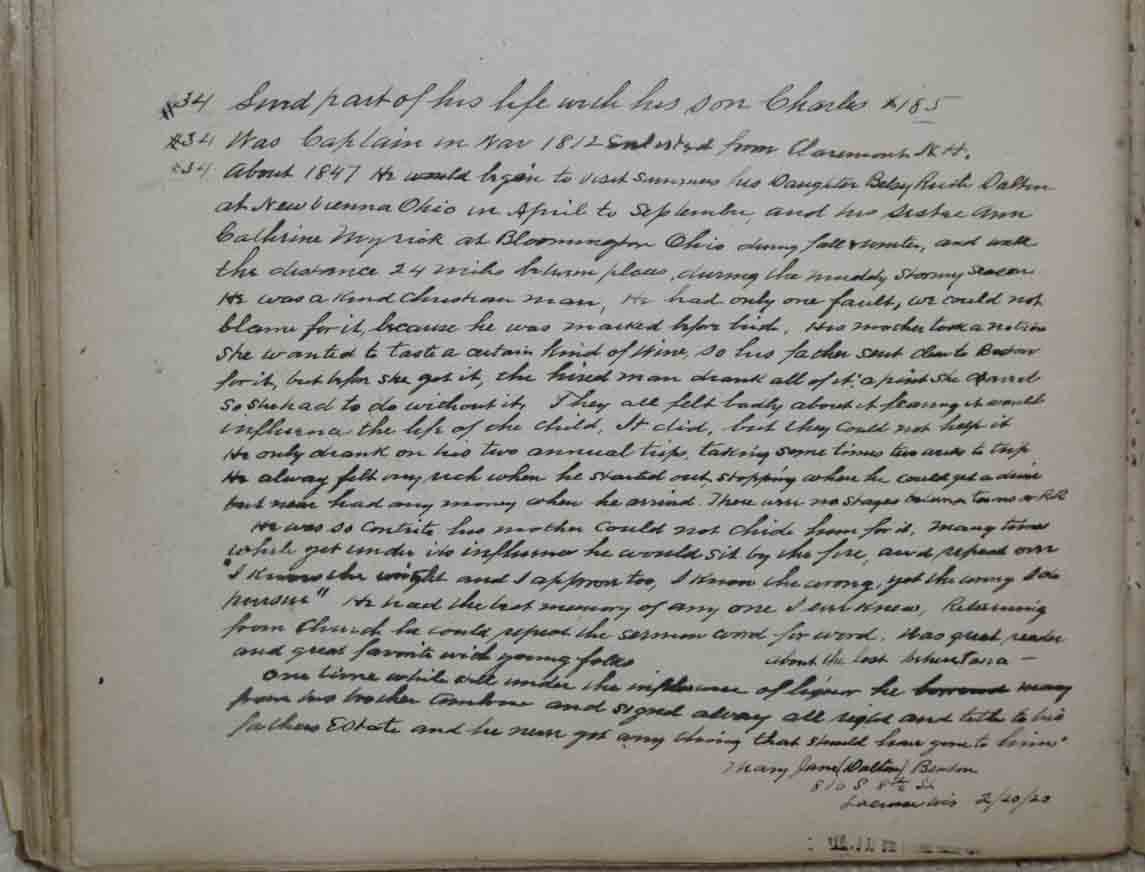 #34 Lived part of his life with his son Charles * 185
#34 Was Captain in War 1812 Enlisted from Claremont N.H.
#34 About 1847 He would begin to visit Summers his Daughter Betsy Dalton
at New Vienna Ohio in April to September, and his sister Ann
Cathrine Myrick at Bloomington Ohio during fall & winter, and walk
the distance 24 miles between places, during the muddy stormy season
He was a kind Christian man, He had only one fault, we could not
blame for it, because he was marked before birth. His mother took a notion
She wanted to taste a certain kind of wine, so his father sent clear to Boston
for it, but before she got it, the hired man drank all of it, a pint she
So she had to do without it. They all felt badly about it fearing it would
influence the life of the child. It did, but they could not help it
He only drank on his two annual trips, taking some times two weeks to trip
He always felt very rich when he started out, stopping where he could get a drink
but never had any money when he arrived. There were no stages between towns or RR
He was so contrite his mother could not chide him for it. Many times
while yet under its influence he would sit by the fire, and repeat over
"I know the right and I approve too, I know the wrong, yet the wrong I do
pursue" He had the best memory of any one I ever knew, Returning
from Church he could repeat the sermon word for word. Was great reader
and great favorite with young folks about the last
One time while still under the influence of liquor he borrowed money
from his brother and signed away all right and title to his
fathers Estate and he never got any thing that should have gone to him"
Mary Jane (Dalton) Benton
810 S 8th St
Lacrosse Wis 2/20/20